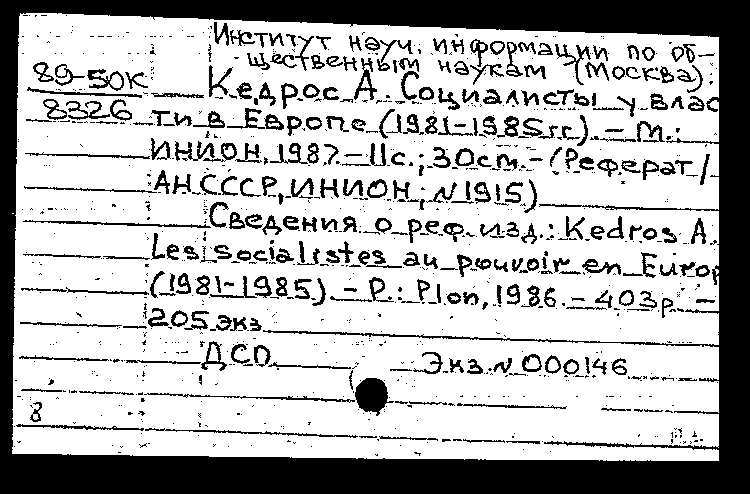 Институт науч. информации по об-
щественным наукам (Москва).
89-50К
8326
Кедрос А. Социалисты у влас
ти в Европе (1981-1985гг). - М.:
ИНИОН, 1987. - 11с.; 30см. - (Реферат /
АН СССР, ИНИОН; N1915)
Сведения о реф. изд.: Kedros A.
Les socialistes au pouvoir en Europ
(1981-1985). - P.: Plon, 1986. - 403p. -
205 экз
ДСП. Экз. N 000146
8